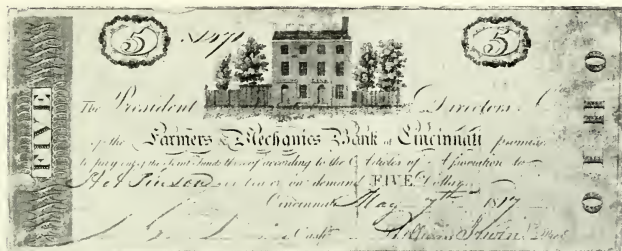 5 5
The President Directors
of the Farmers & Mechanics Bank of Cincinnati promise
to pay out of the Joint Funds thereof according to the Articles of Association to
or bearer on demand FIVE Dollars
Cincinnati May 7th 1817
Cash. Pres.
FIVE
OHIO